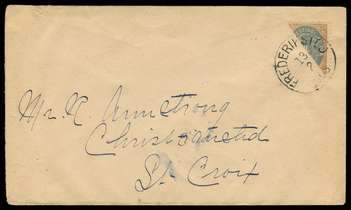 FREDERIKSTED
13
2
Mr. N. Armstrong
Christiansted
St. Croix